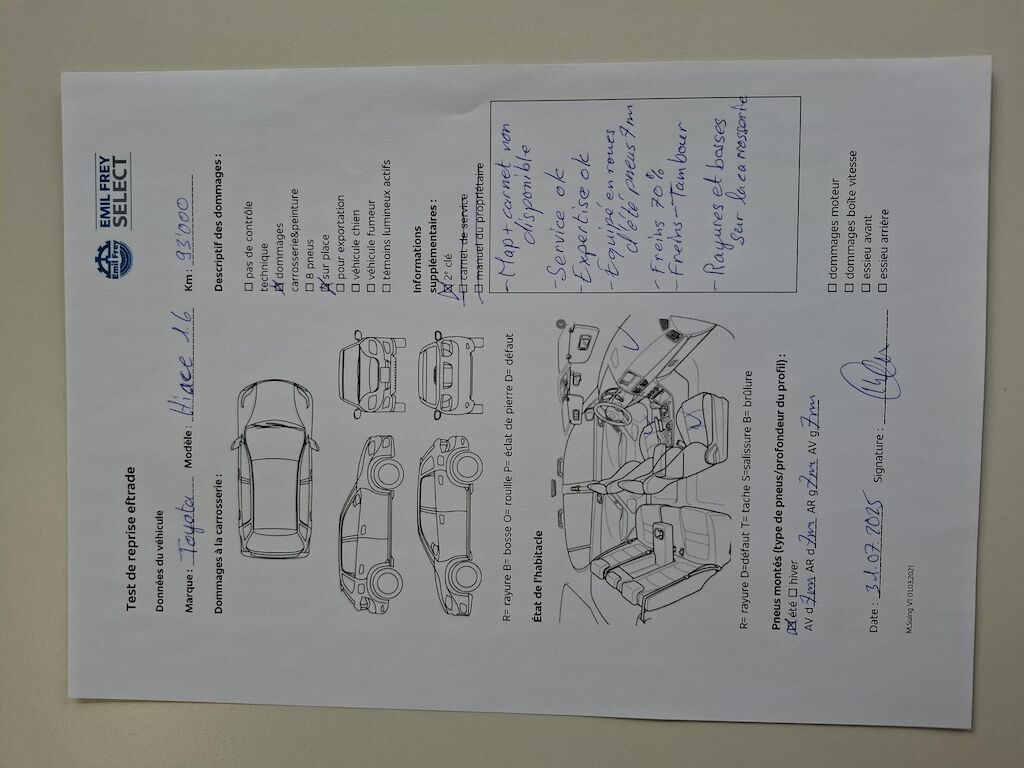 Emil Frey
EMIL FREY
SELECT
Test de reprise eftrade
Données du véhicule
Marque : Toyota Modèle : Hiace 16 Km : 93'000
Dommages à la carrosserie :
Descriptif des dommages :
☐ pas de contrôle
technique
☒ dommages
carrosserie&peinture
☐ 8 pneus
☒ sur place
☐ pour exportation
☐ véhicule chien
☐ véhicule fumeur
☐ témoins lumineux actifs
Informations
supplémentaires :
☒ 2ᵉ clé
☐ carnet de service
☐ manuel du propriétaire
R= rayure B= bosse O= rouille P= éclat de pierre D= défaut
État de l'habitacle
- Map + carnet non
disponible
- Service ok
- Expertise ok
- Equipé en roues
d'été pneus 7m
- Freins 70%
- Freins - Tambour
- Rayures et bosses
sur la carrosserie
R= rayure D=défaut T= tache S=salissure B= brûlure
Pneus montés (type de pneus/profondeur du profil) :
☒ été ☐ hiver
AV d 7m AR d 7m AR g 7m AV g 7m
☐ dommages moteur
☐ dommages boîte vitesse
☐ essieu avant
☐ essieu arrière
Date : 31.07.2025 Signature :
M.Suing V1 01.03.2021